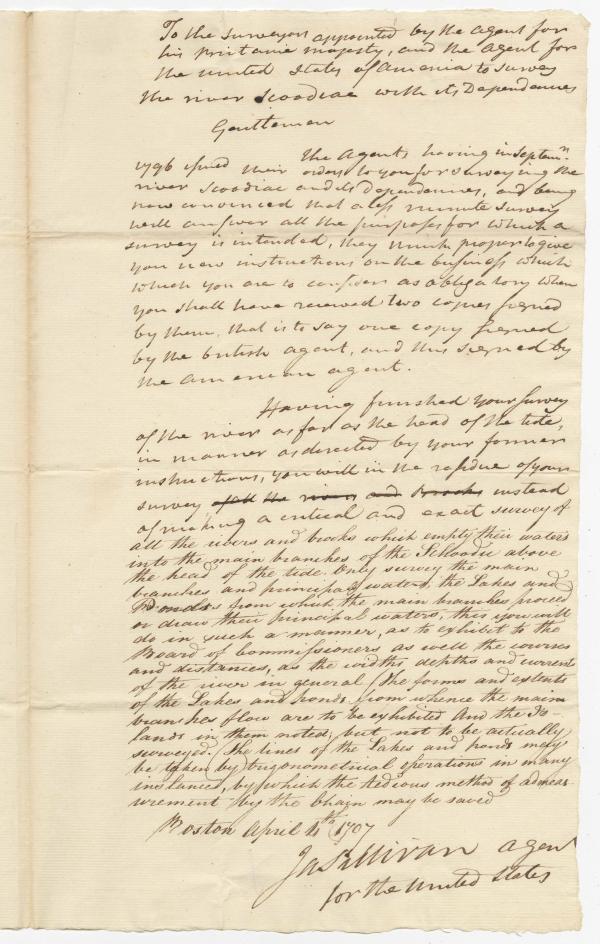 To the surveyors appointed by the agent for
his Britanic majesty, and the agent for
the united States of America to survey
the river Scoodiac with its Dependences
Gentlemen
The Agents having in Septemr.
1796 issued their orders to you for surveying the
river Scoodiac and its Dependences, and being
now convinced that a less minute survey
will answer all the purposes for which a
survey is intended, they think proper to give
you new instructions on the business which
which you are to consider as obligatory when
you shall have received two copies signed
by them, that is to say one copy signed
by the british agent, and this signed by
the american agent.
Having finished your survey
of the river as far as the head of the tide,
in manner as directed by your former
instructions, you will in the residue of your
survey of all the rivers and brooks instead
of making a critical and exact survey of
all the rivers and brooks which empty their waters
into the main branches of the Schoodic above
the head of the tide. Only survey the main
branches and principal waters, the Lakes and
Ponds from which the main branches proceed
or draw their principal waters, this you will
do in such a manner, as to exhibit to the
Board of Commissioners as well the courses
and distances, as the widths depths and currents
of the river in general. The forms and extents
of the Lakes and ponds from whence the main
branches flow are to be exhibited And the Is-
lands in them noted, but not to be actually
surveyed. The lines of the Lakes and ponds may
be taken by trigonometrical operations in many
instances, by which the tedious method of admeas
urement by the Chain may be saved
Boston April 11th 1797
Ja Sullivan agent
for the united States